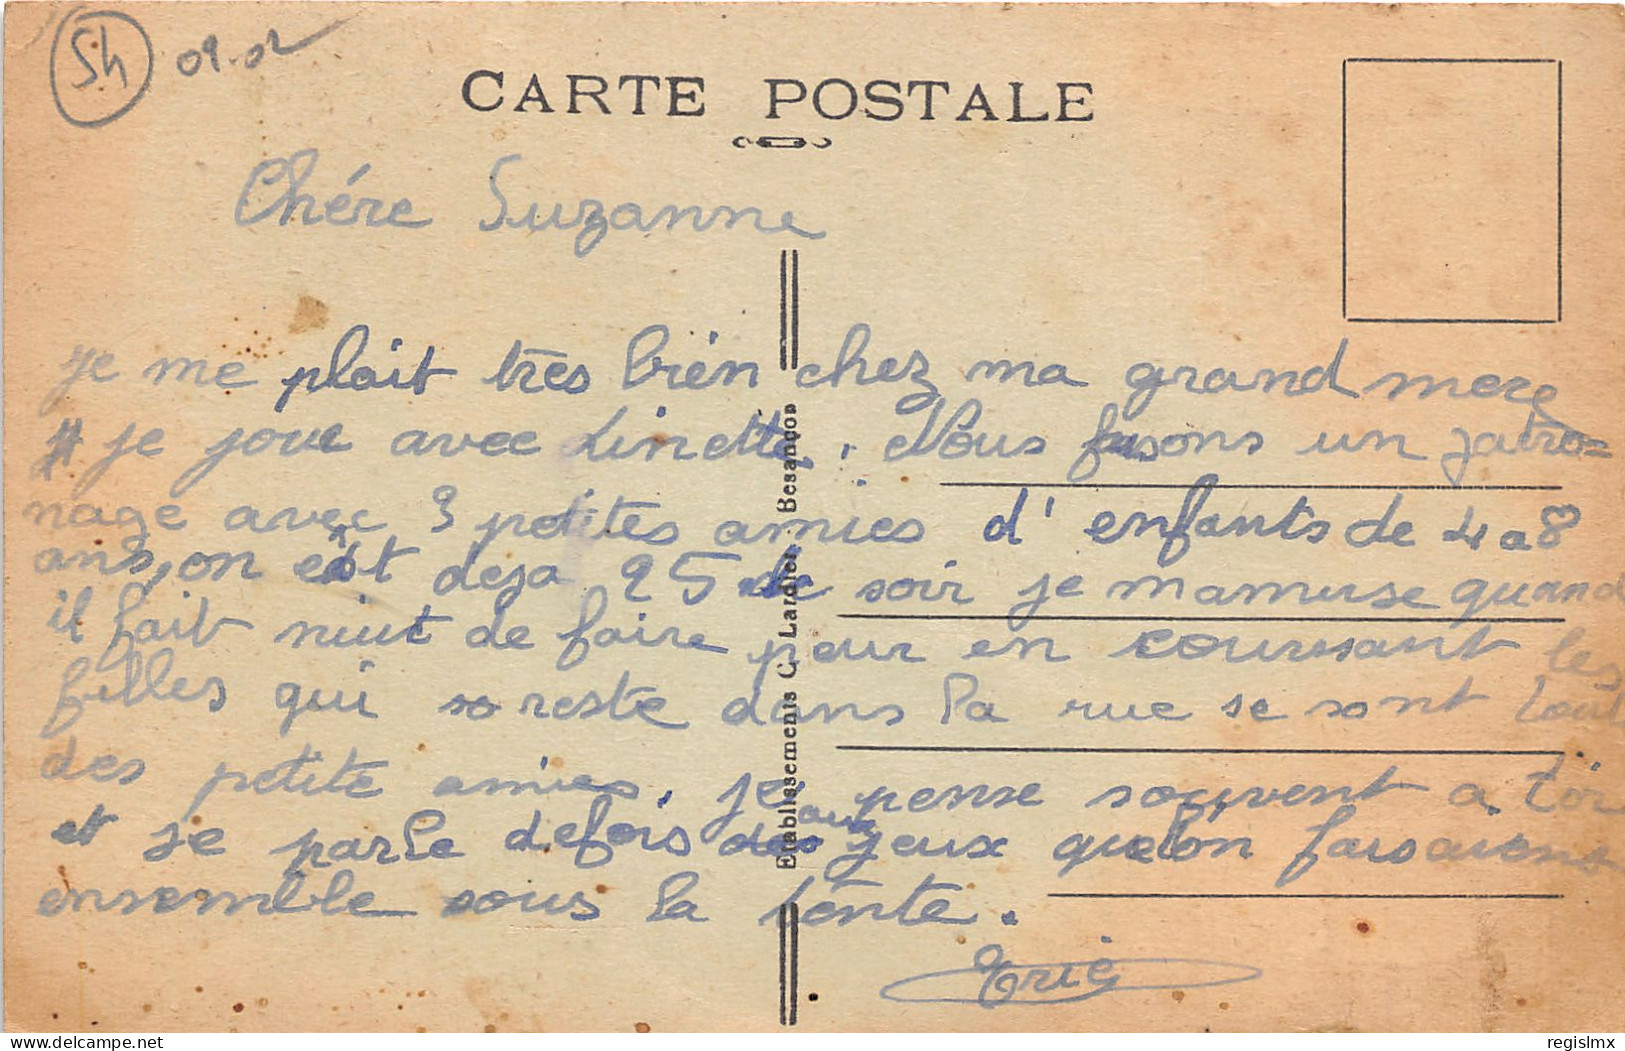 54 09.02
CARTE POSTALE
Chére Suzanne
je me plait très bien chez ma grand mere
je joue avec Linette. Nous fusons un patro=
nage avec 3 petites amies d' enfants de 4 a 8
ans, on est deja 25 de soir je mamuse quand
il fait niut de faire peur en coursant les
filles qui reste dans la rue se sont tout
des petite amies. je pense souvent a toi
et je parle defois aux jeux quelon faisaions
ensemble sous la tente.
Eric
Etablissements C. Lardier - Besançon
delcampe.net
regislmx